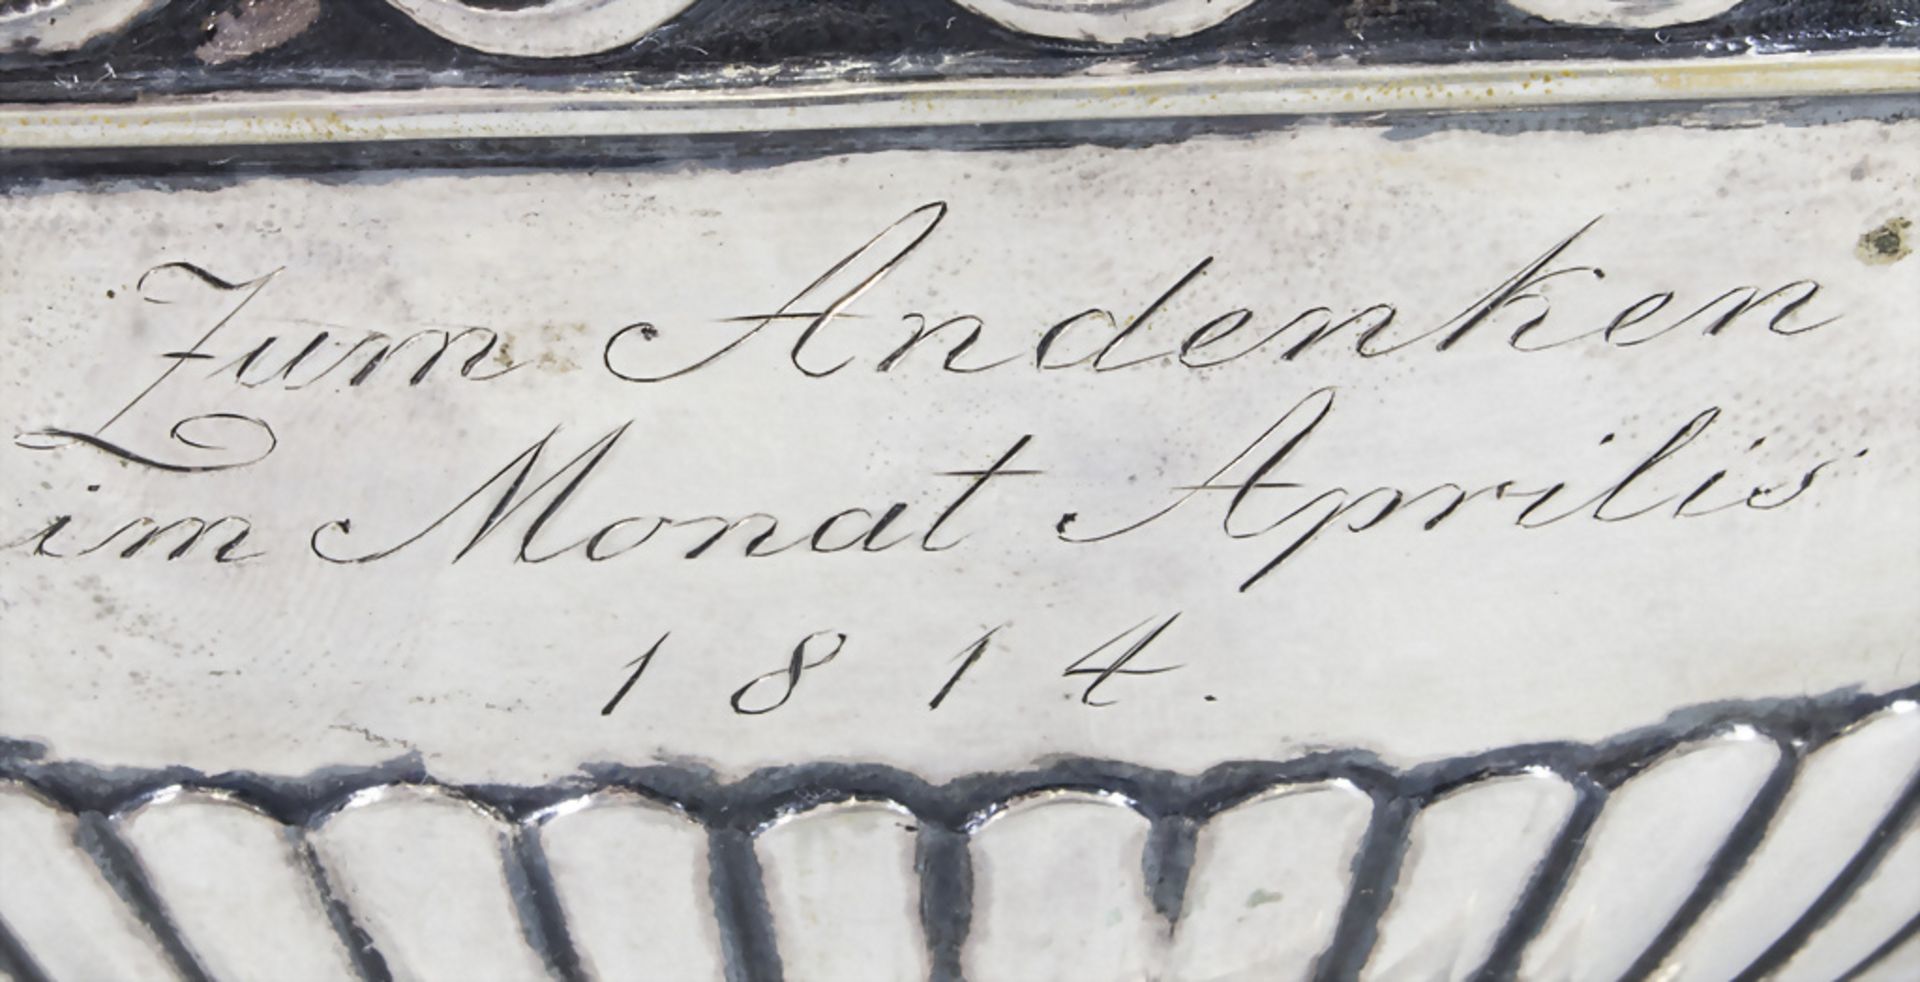 Zum Andenken
im Monat Aprilis
1814.